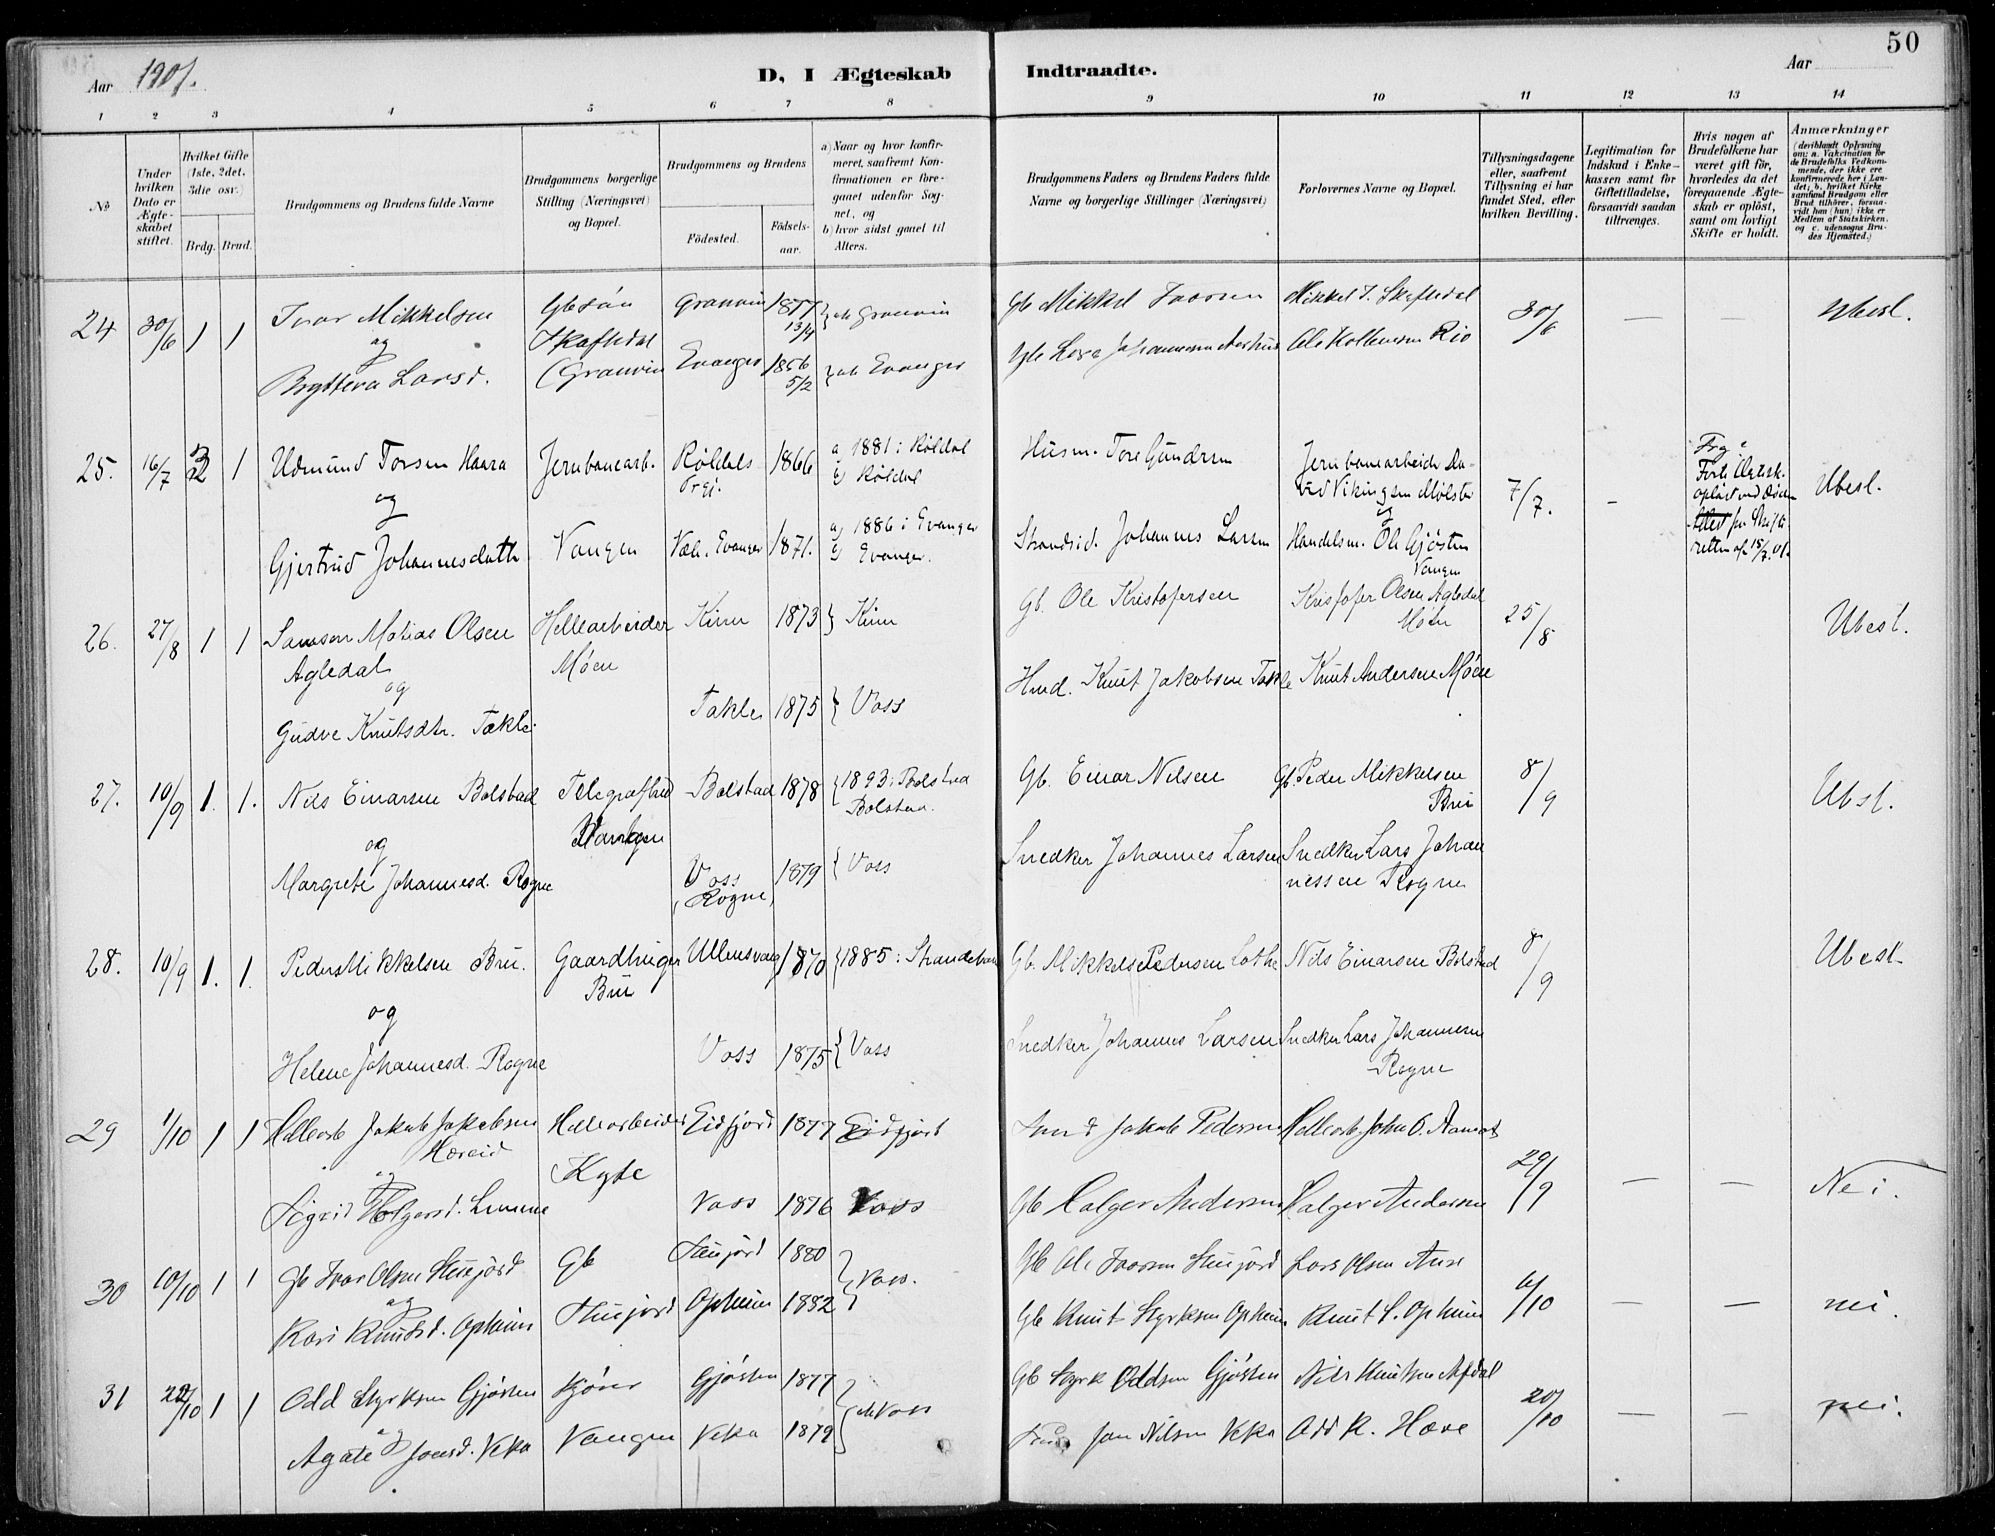 50
Aar 1901.
D, I Ægteskab Indtraadte.
Aar
1 2 3 4 5 6 7 8 9 10 11 12 13 14
No
Under hvilken Dato er Ægteskabet stiftet.
Hvilket Gifte (1ste, 2det, 3die osv.)
Brdg. Brud.
Brudgommens og Brudens fulde Navne
Brudgommens borgerlige Stilling (Næringsvei) og Bopæl.
Brudgommens og Brudens
Fødested. Fødsels-aar.
a) Naar og hvor konfirmeret, saafremt Konfirmationen er foregaaet udenfor Sognet, og
b) hvor sidst gaaet til Alters.
Brudgommens Faders og Brudens Faders fulde Navne og borgerlige Stillinger (Næringsvei)
Forlovernes Navne og Bopæl.
Tillysningsdagene eller, saafremt Tillysning ei har fundet Sted, efter hvilken Bevilling.
Legitimation for Indskud i Enkekassen samt for Giftetilladelse, forsaavidt saadan tiltrænges.
Hvis nogen af Brudefolkene har været gift før, hvorledes da det foregaaende Ægteskab er opløst, samt om lovligt Skifte er holdt.
Anmærkninger (deriblandt Oplysning om: a. Vakcination for de Brudefolks Vedkommende, der ikke ere konfirmerede her i Landet; b. hvilket Kirkesamfund Brudgom eller Brud tilhører, forsaavidt han (hun) ikke er Medlem af Statskirken, og c. udensogns Brudes Hjemsted.)
24 30/6 1 1 Ivar Mikkelsen Gbsøn Granvin 1877 13/4 Granvin Gb Mikkel Ivarsen Mikkel I. Skaftedal 30/6 — — Ubesl.
og Skaftedal
Brytteva Larsd. (Granvin Evanger 1856 5/2 Evanger Gb Lars Johannesen Ole Kolbensen Rio
25. 16/7 2 1 Udmund Torsen Haara Jernbanearb. Røldals Prgj. 1866 a) 1881 i Røldal b) Røldal Husm. Tore Gundersen Jernbanearbeider David Vikingsen Mølster 7/7. - Ubesl.
og og
Gjertrud Johannesdatter Vangen Væle. Evanger 1871. a) 1886 i Evanger b) Evanger. Strandsid. Johannes Larsen Handelsm. Ole Gjøsten Vangen
26. 27/8 1 1 Samson Matias Olsen Agledal Hellearbeider Møen Kinn 1873 Kinn Gb. Ole Kristofersen Kristofer Olsen Agledal Møen 25/8 Ubesl.
og
Gudve Knutsdtr. Takle Takle 1875 Voss Hmd. Knut Jakobsen Takle Knut Andersen Møen
27. 10/9 1. 1. Nils Einarsen Bolstad Telegrafbud Bolstad 1878 1893: Bolstad Bolstad. Gb. Einar Nilsen Gb. Peder Mikkelsen Bru 8/9 Ubesl.
og Vangen
Margrete Johannesd. Rogne Voss (Rogne) 1879 Voss Snedker Johannes Larsen Snedker Lars Johannessen Rogne
28. 10/9 1. 1. Peder Mikkelsen Bru. Gaardbruger Bru Ullensvang 1870 1885: Strandebarm Gb. Mikkel Pedersen Lothe Nils Einarsen Bolstad 8/9 Ubesl.
og
Helene Johannesd. Rogne Voss 1875 Voss Snedker Johannes Larsen Snedker Lars Johannesen Rogne
29 1/10 1 1 Hellearb Jakob Jakobsen Hereid Hellearbeider Eidfjord 1877 Eidfjord Jakob Pedersen Hellearb. John O. 29/9 — — Nei.
og Kyte
Sigrid Holgersd. Voss 1876 Voss Gb Holger Andersen Holger Andersen
30 10/10 1 1 Gb Ivar Olsen Gb 1880 Voss. Gb Ole Ivarsen Lars Olsen 6/10 — — nei.
og
Kari Knutsd. Opheim Opheim 1882 Gb Knut Styrksen Opheim Knut S. Opheim
31 22/10 1 1 Odd Styrksen Gjøsten Kjører Gjøsten 1877 Voss Gb Styrk Oddsen Gjøsten Nils Knutsen Afdal 20/10 — — nei.
og
Agate Jonsd. Veka Vangen Veka 1879 Jon Nilsen Veka Odd K. Hæve